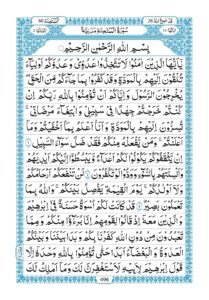 قد سمع الله 28
الممتحنة 60
سورة الممتحنة مدنية
بِسْمِ اللهِ الرَّحْمٰنِ الرَّحِيْمِ
يٰٓاَيُّهَا الَّذِيْنَ اٰمَنُوْا لَا تَتَّخِذُوْا عَدُوِّيْ وَعَدُوَّكُمْ اَوْلِيَآءَ
تُلْقُوْنَ اِلَيْهِمْ بِالْمَوَدَّةِ وَقَدْ كَفَرُوْا بِمَا جَآءَكُمْ مِّنَ الْحَقِّ
يُخْرِجُوْنَ الرَّسُوْلَ وَاِيَّاكُمْ اَنْ تُؤْمِنُوْا بِاللهِ رَبِّكُمْ اِنْ
كُنْتُمْ خَرَجْتُمْ جِهَادًا فِيْ سَبِيْلِيْ وَابْتِغَآءَ مَرْضَاتِيْ
تُسِرُّوْنَ اِلَيْهِمْ بِالْمَوَدَّةِ وَاَنَا اَعْلَمُ بِمَآ اَخْفَيْتُمْ وَمَآ
اَعْلَنْتُمْ وَمَنْ يَّفْعَلْهُ مِنْكُمْ فَقَدْ ضَلَّ سَوَآءَ السَّبِيْلِ
اِنْ يَّثْقَفُوْكُمْ يَكُوْنُوْا لَكُمْ اَعْدَآءً وَّيَبْسُطُوْٓا اِلَيْكُمْ اَيْدِيَهُمْ
وَاَلْسِنَتَهُمْ بِالسُّوْٓءِ وَوَدُّوْا لَوْ تَكْفُرُوْنَ لَنْ تَنْفَعَكُمْ اَرْحَامُكُمْ
وَلَآ اَوْلَادُكُمْ يَوْمَ الْقِيٰمَةِ يَفْصِلُ بَيْنَكُمْ وَاللهُ بِمَا
تَعْمَلُوْنَ بَصِيْرٌ قَدْ كَانَتْ لَكُمْ اُسْوَةٌ حَسَنَةٌ فِيْٓ اِبْرٰهِيْمَ
وَالَّذِيْنَ مَعَهٗ اِذْ قَالُوْا لِقَوْمِهِمْ اِنَّا بُرَءٰٓؤُا مِنْكُمْ وَمِمَّا
تَعْبُدُوْنَ مِنْ دُوْنِ اللهِ كَفَرْنَا بِكُمْ وَبَدَا بَيْنَنَا وَبَيْنَكُمُ
الْعَدَاوَةُ وَالْبَغْضَآءُ اَبَدًا حَتّٰى تُؤْمِنُوْا بِاللهِ وَحْدَهٗٓ اِلَّا
قَوْلَ اِبْرٰهِيْمَ لِاَبِيْهِ لَاَسْتَغْفِرَنَّ لَكَ وَمَآ اَمْلِكُ لَكَ
496